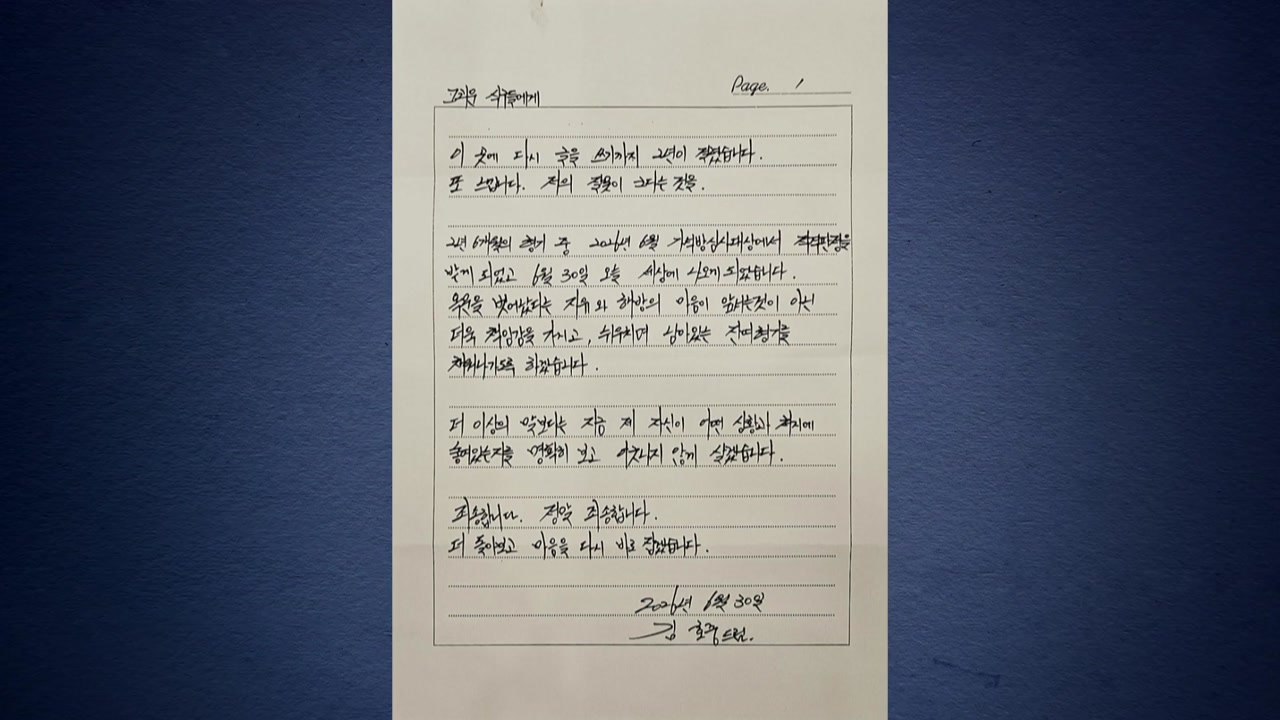 그리운 식구들에게
Page. 1
이 곳에 다시 글을 쓰기까지 2년이 걸렸습니다.
또 느낍니다. 저의 잘못이 크다는 것을.
2년 6개월의 형기 중 2026년 6월 가석방심사대상에서 적격판정을
받게 되었고 6월 30일 오늘 세상에 나오게 되었습니다.
옥문을 벗어났다는 자유와 해방의 마음이 앞서는것이 아닌
더욱 책임감을 가지고, 뉘우치며 남아있는 잔여형기를
채워나가도록 하겠습니다.
더 이상의 약속보다는 지금 제 자신이 어떤 상황과 처지에
놓여있는지를 명확히 보고 어긋나지 않게 살겠습니다.
죄송합니다. 정말 죄송합니다.
더 돌아보고 마음을 다시 바로 잡겠습니다.
2026년 6월 30일
김호중 드림.